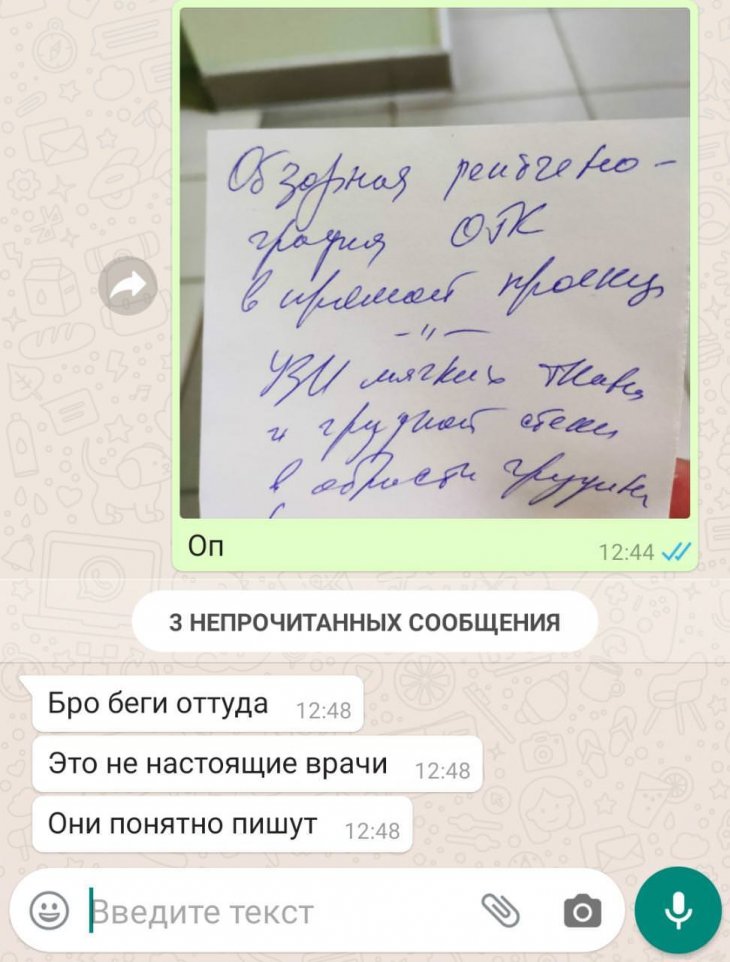 Обзорная рентгено-
графия ОГК
в прямой проекц
-"-
УЗИ мягких ткане
и грудной стенки
в области грудины
Оп
12:44
3 НЕПРОЧИТАННЫХ СООБЩЕНИЯ
Бро беги оттуда 12:48
Это не настоящие врачи 12:48
Они понятно пишут 12:48
Введите текст